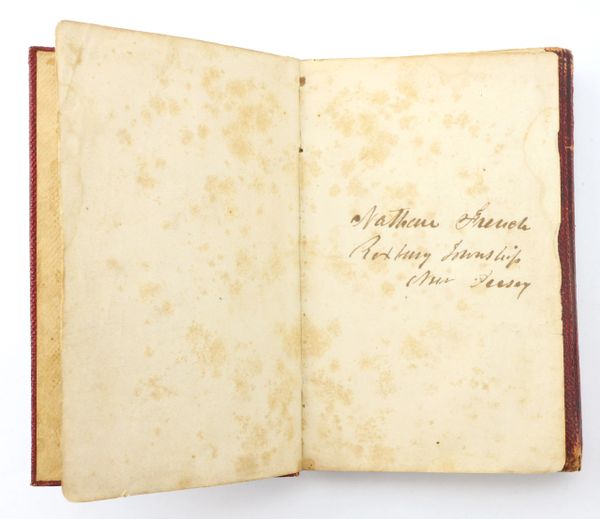 Nathan French
Roxbury Township
New Jersey